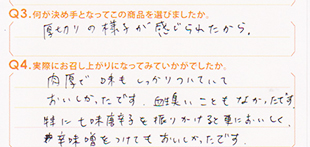 Q3.何が決め手となってこの商品を選びましたか。
厚切りの様子が感じられたから。
Q4.実際にお召し上がりになってみていかがでしたか。
肉厚で味もしっかりついていて
おいしかったです。血生臭いこともなかったです
特に七味唐辛子を振りかけると更においしく、
辛味噌をつけてもおいしかったです。